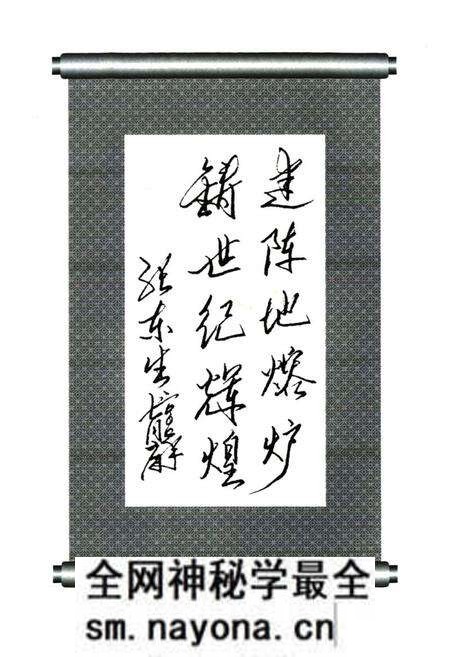 建阵地熔炉
鑄世纪辉煌
张东生
全网神秘学最全
sm.nayona.cn